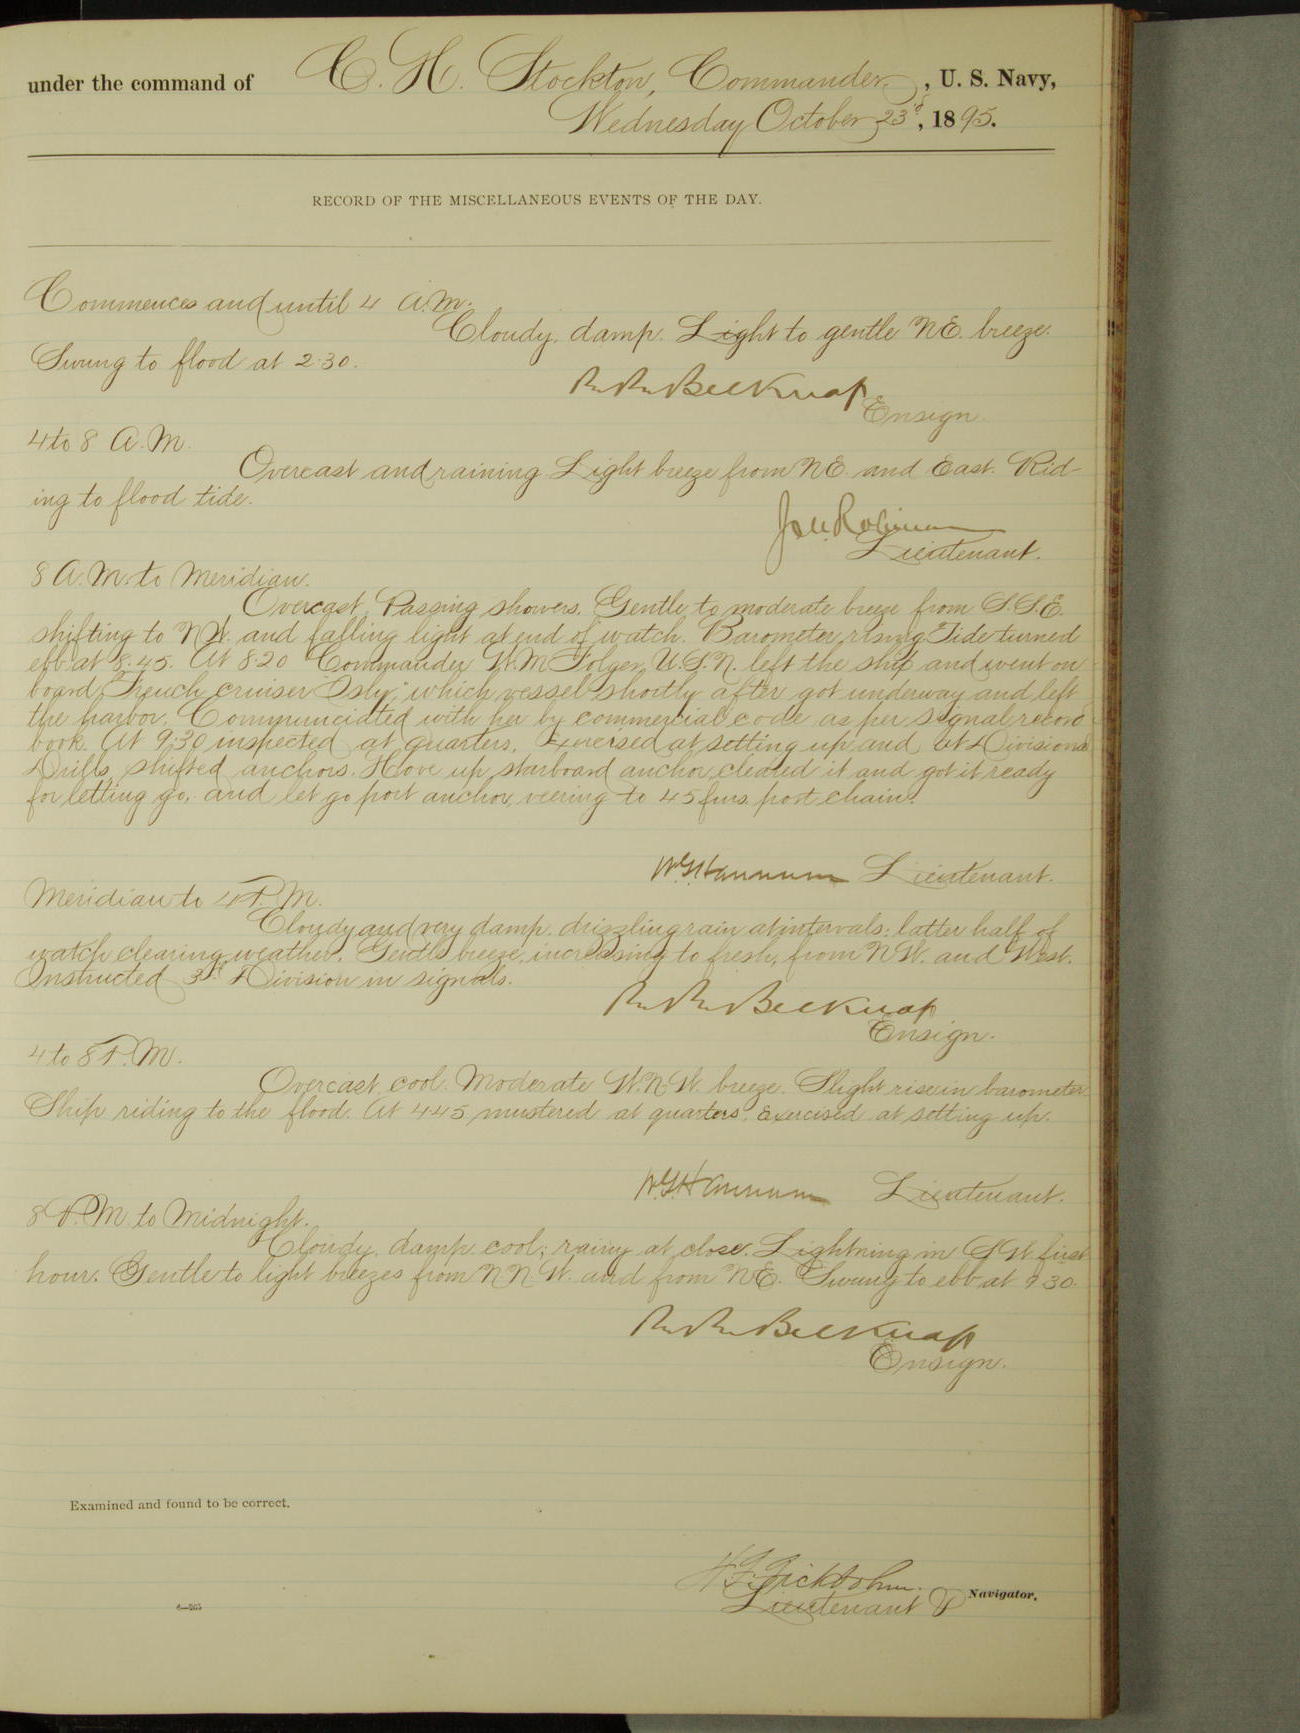 under the command of C. H. Stockton, Commander, , U. S. Navy,
Wednesday October 23d, 1895.
RECORD OF THE MISCELLANEOUS EVENTS OF THE DAY.
Commences and until 4 A.M.
Cloudy, damp. Light to gentle NE. breeze.
Swung to flood at 2.30.
R. R. Belknap
Ensign.
4 to 8 A.M.
Overcast and raining. Light breeze from NE. and East. Rid-
ing to flood tide.
Robinson
Lieutenant.
8 A.M. to Meridian.
Overcast, Passing showers. Gentle to moderate breeze from S.S.E.
shifting to NW. and falling light at end of watch. Barometer rising. Tide turned
ebb at 8.45. At 8.20 Commander W.M Folger, U.S.N. left the ship and went on
board French cruiser "Isly," which vessel shortly after got underway and left
the harbor. Communicated with her by commercial code as per signal record
book. At 9:30 inspected at quarters. Exercised at setting up and at Divisional
Drills, shifted anchors. Hove up starboard anchor, cleared it and got it ready
for letting go, and let go port anchor, veering to 45 fms. port chain.
W.G. Hannum Lieutenant.
Meridian to 4 P.M.
Cloudy and very damp, drizzling rain at intervals; latter half of
watch clearing weather. Gentle breeze, increasing to fresh, from NW. and West.
Instructed 3d Division in signals.
R. R. Belknap
Ensign.
4 to 8 P.M.
Overcast, cool. Moderate W.N.W. breeze. Slight rise in barometer.
Ship riding to the flood. At 4.45 mustered at quarters. Exercised at setting up.
W.G. Hannum Lieutenant.
8 P.M. to Midnight.
Cloudy, damp, cool; rainy at close. Lightning in SW. first
hour. Gentle to light breezes from NNW. and from NE. Swung to ebb at 9.30.
R. R. Belknap
Ensign.
Examined and found to be correct.
Lieutenant & Navigator.
6—265